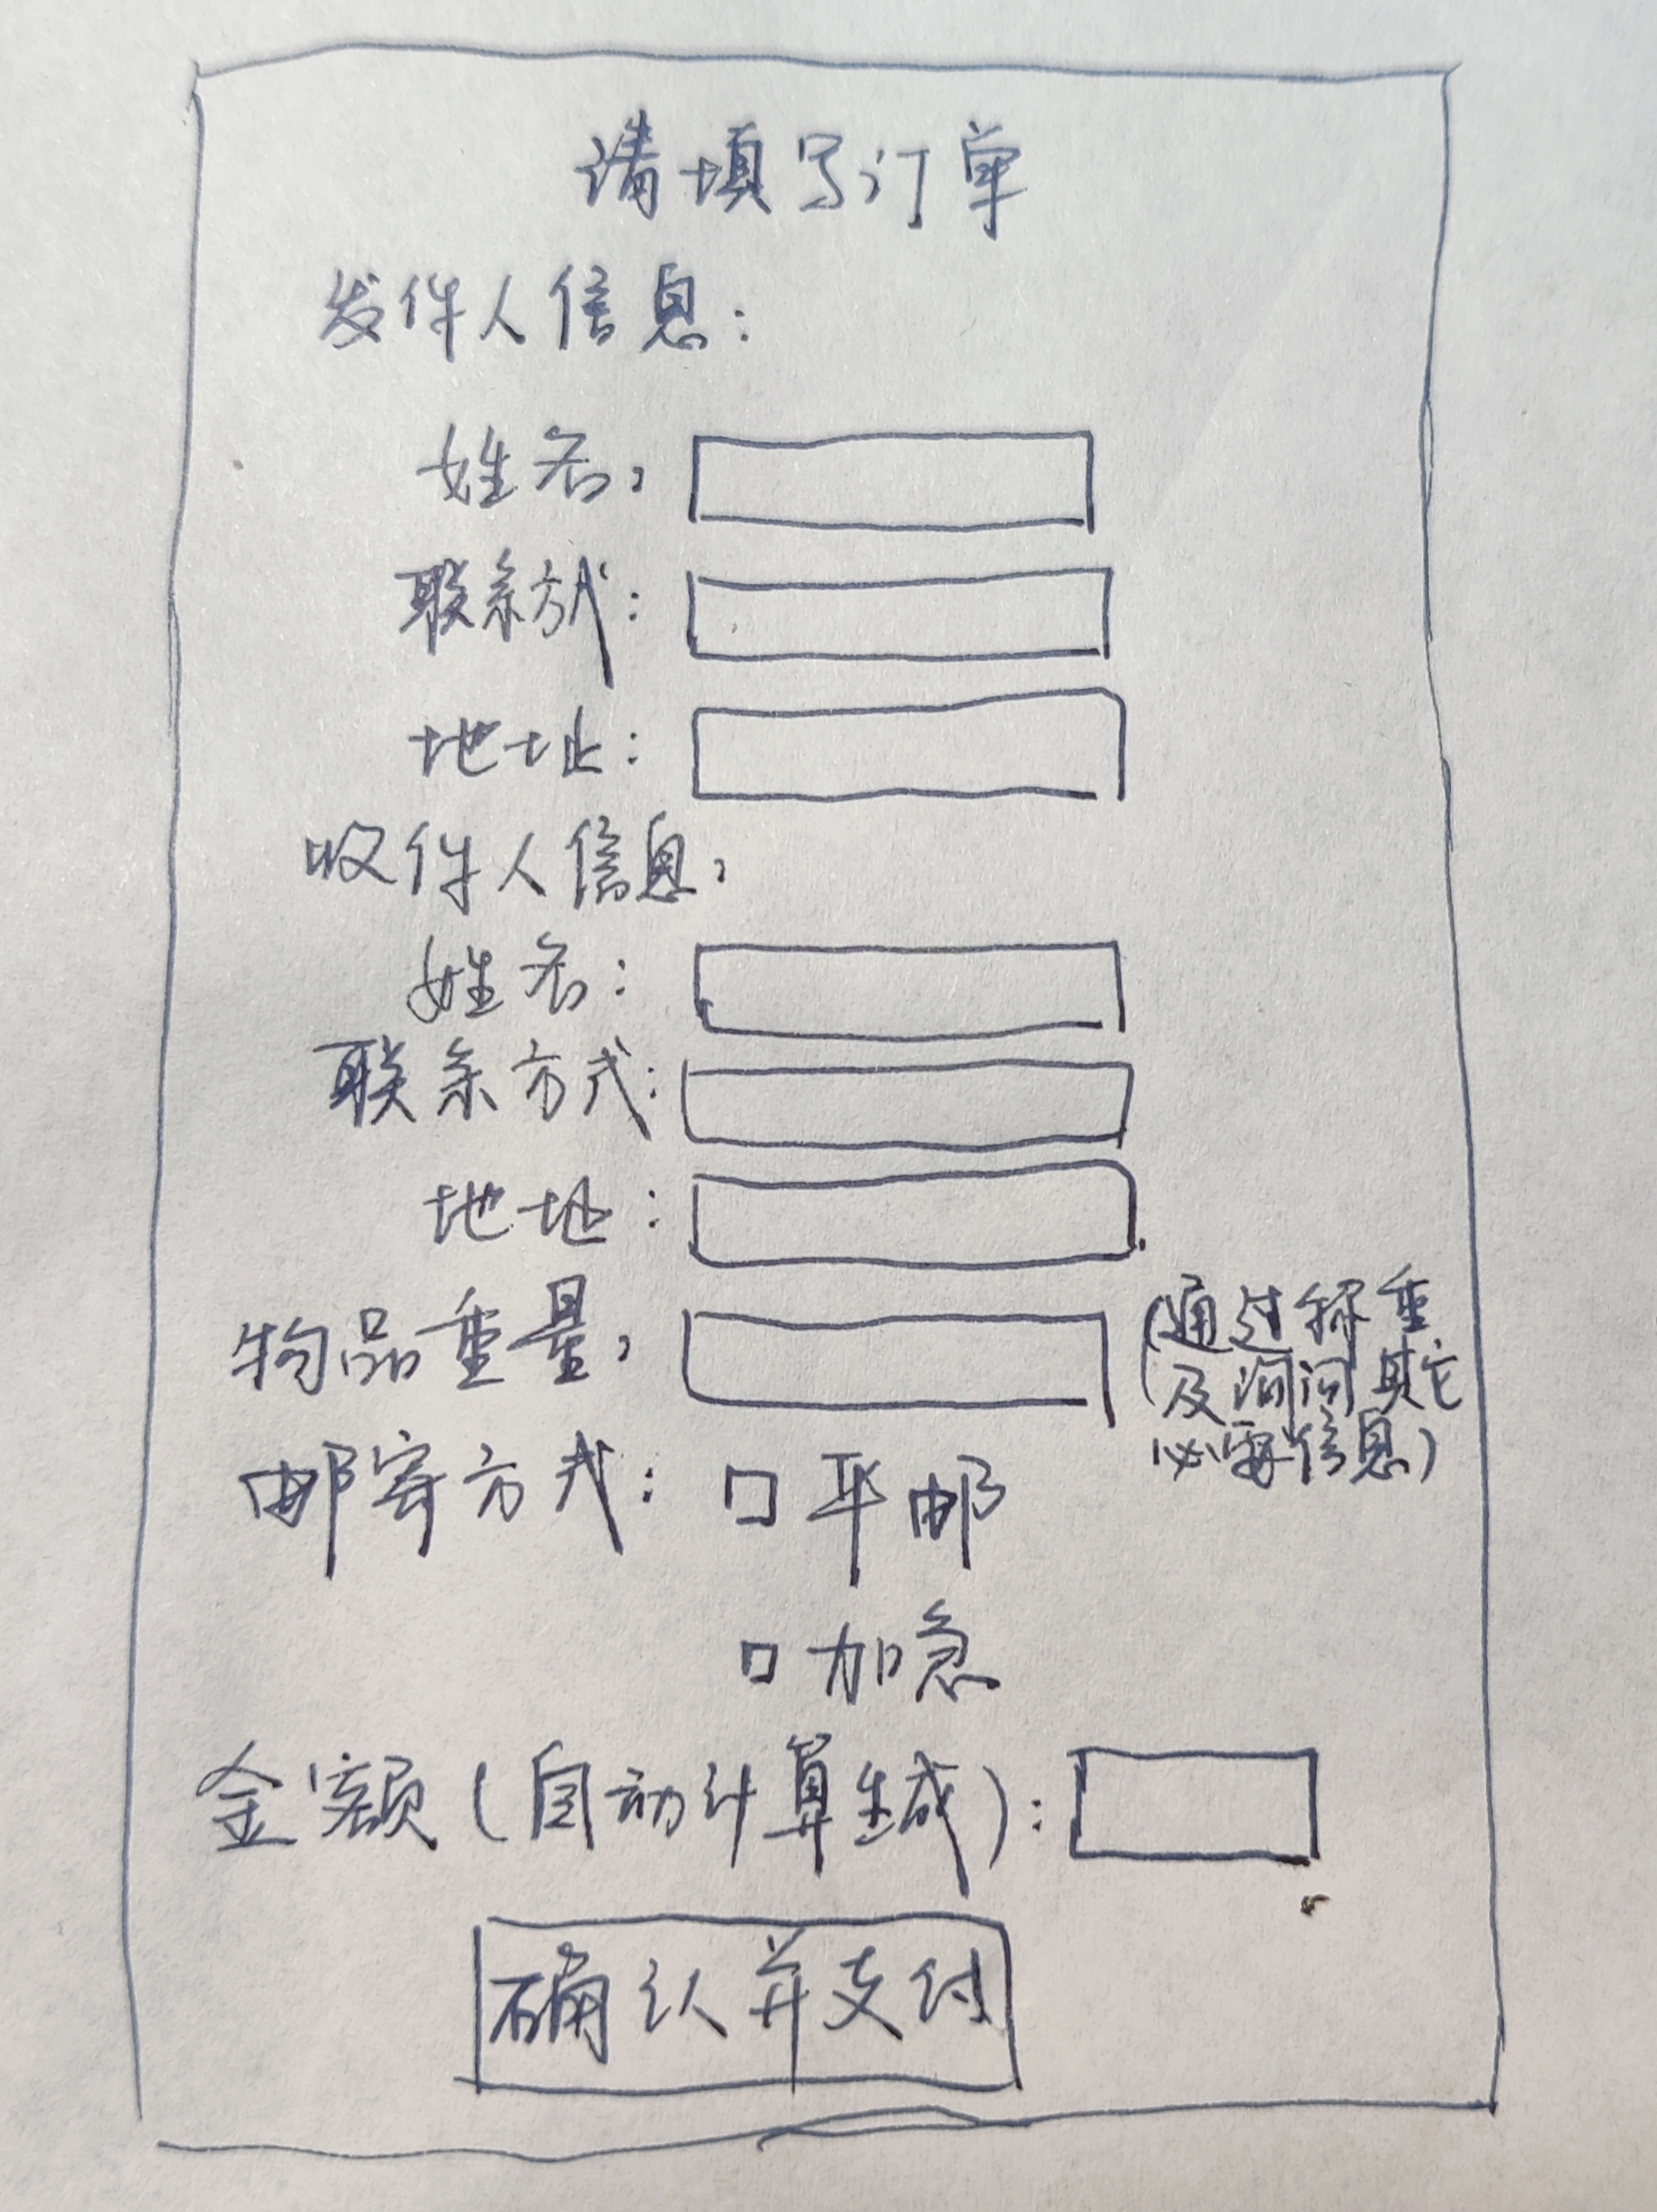 请填写订单
发件人信息:
姓名:
联系方式:
地址:
收件人信息:
姓名:
联系方式:
地址:
物品重量:
(通过称重
及询问其它
必需信息)
邮寄方式: □平邮
□加急
金额(自动计算生成):
确认并支付